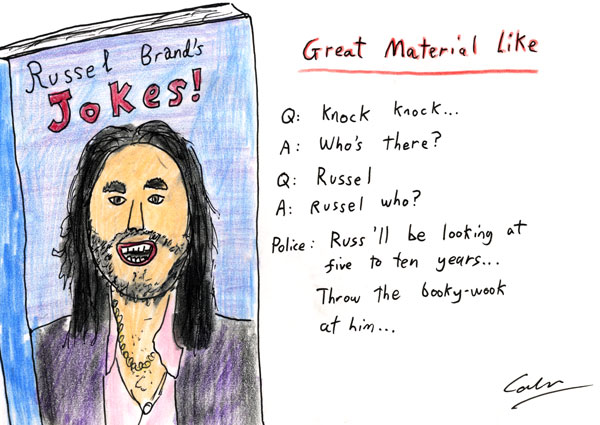 Russel Brand's
JOKES!
Great Material Like
Q: Knock knock...
A: Who's there?
Q: Russel
A: Russel who?
Police: Russ'll be looking at
five to ten years...
Throw the booky-wook
at him...